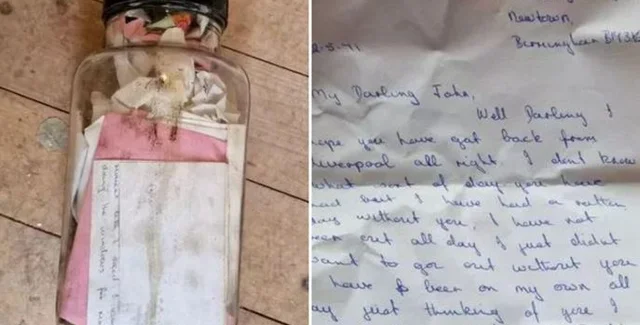 Newtown,
Birmingham
My Darling John,
Well Darling I
ope you have got back from
Liverpool all right, I dont know
what sort of day you have
had but I have had a rotten
ay without you, I have not
een out all day I just didnt
want to gor out without you
have been on my own all
ay just thinking of you I
windows for